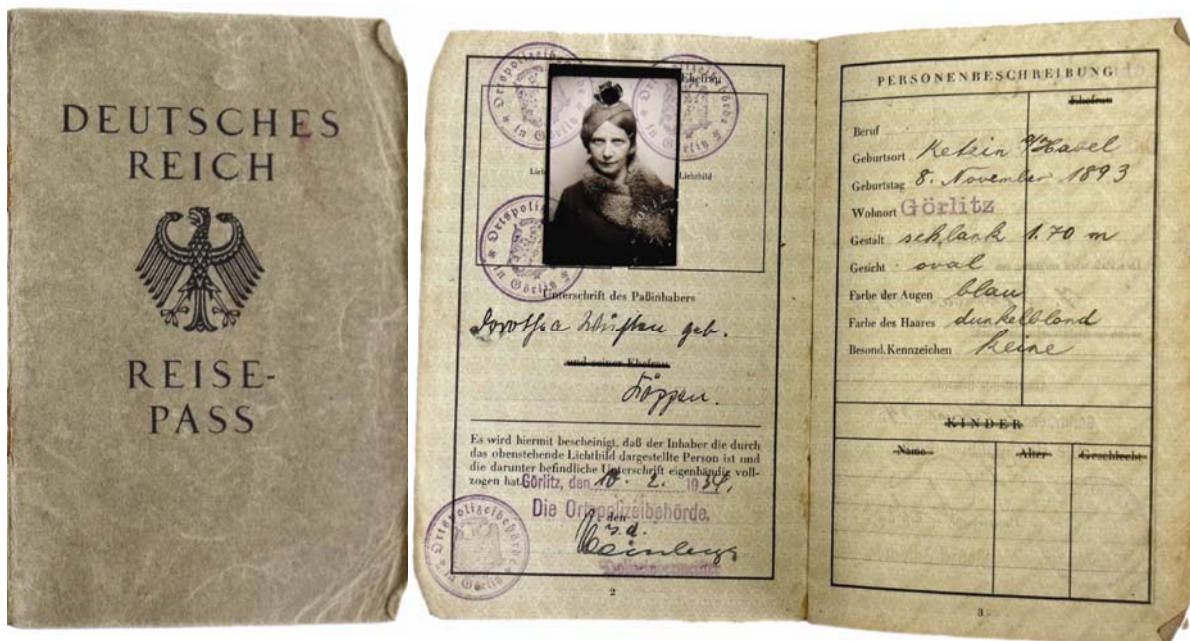 DEUTSCHES
REICH
REISE-
PASS
Ehefrau
Ortspolizeibehörde
in Görlitz
Ortspolizeibehörde
in Görlitz
Lichtbild
Ortspolizeibehörde
in Görlitz
Unterschrift des Paßinhabers
Dorothea geb.
und seiner Ehefrau
Töppen.
Es wird hiermit bescheinigt, daß der Inhaber die durch
das obenstehende Lichtbild dargestellte Person ist und
die darunter befindliche Unterschrift eigenhändig voll-
zogen hat. Görlitz, den 10. 2. 1934.
Die Ortspolizeibehörde.
, den
Ortspolizeibehörde
in Görlitz
2
PERSONENBESCHREIBUNG
Ehefrau
Beruf
Geburtsort Ketzin a/Havel
Geburtstag 8. November 1893
Wohnort Görlitz
Gestalt schlank 1.70 m
Gesicht oval
Farbe der Augen blau
Farbe des Haares dunkelblond
Besond. Kennzeichen Keine
KINDER
Name Alter Geschlecht
3